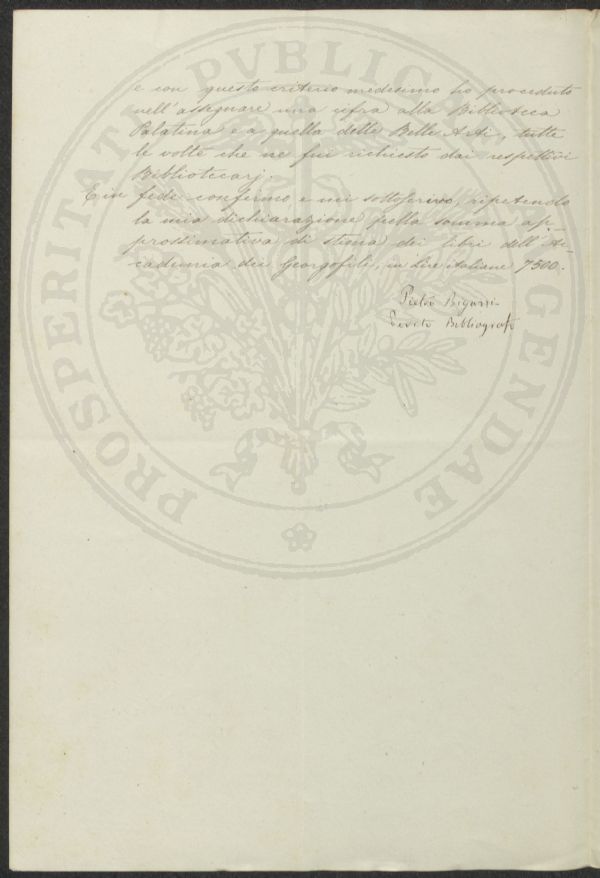 e con questo criterio medesimo ho proceduto
nell'assegnare una cifra alla Biblioteca
Palatina e a quella delle Belle Arti, tutte
le volte che ne fui richiesto dai respettivi
Bibliotecarj.
E in fede confermo, e mi sottoscrivo, ripetendo
la mia dichiarazione pella somma ap-
prossimativa di stima dei libri dell'Ac-
cademia dei Georgofili, in Lire italiane 7500.-
Pietro Bigazzi
Perito Bibliografo
PROSPERITATI PVBLICAE AVGENDAE